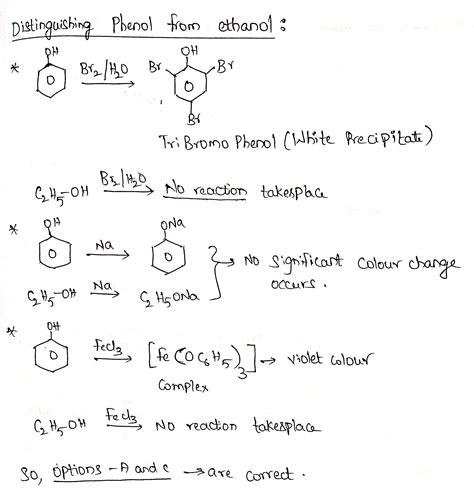 Distinguishing Phenol from ethanol :
* OH Br₂/H₂O OH Br Br Br
TriBromo Phenol (White Precipitate)
C₂H₅-OH Br₂/H₂O No reaction takesplace
* OH Na ONa
C₂H₅-OH Na C₂H₅ONa
No significant colour change
occurs.
* OH FeCl₃ [Fe(OC₆H₅)₃] → violet colour
Complex
C₂H₅-OH FeCl₃ No reaction takesplace
So, options - A and C → are correct.